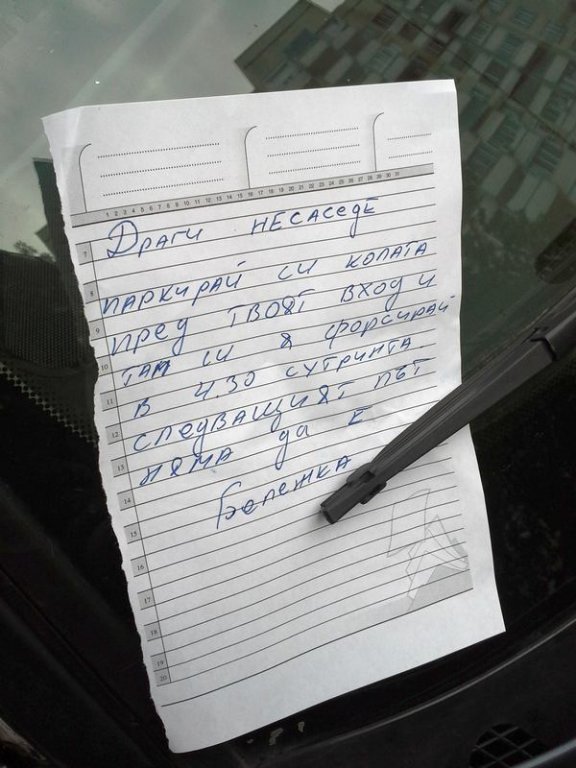 1 2 3 4 5 6 7 8 9 10 11 12 13 14 15 16 17 18 19 20 21 22 23 24 25 26 27 28 29 30 31
Драги несаседе
7
8 паркирай си колата
9 пред твоят вход и
10 там си я форсирай
11 в 4.30 сутринта.
12 следващият път
13 няма да е
14 бележка
15
16
17
18
19
20